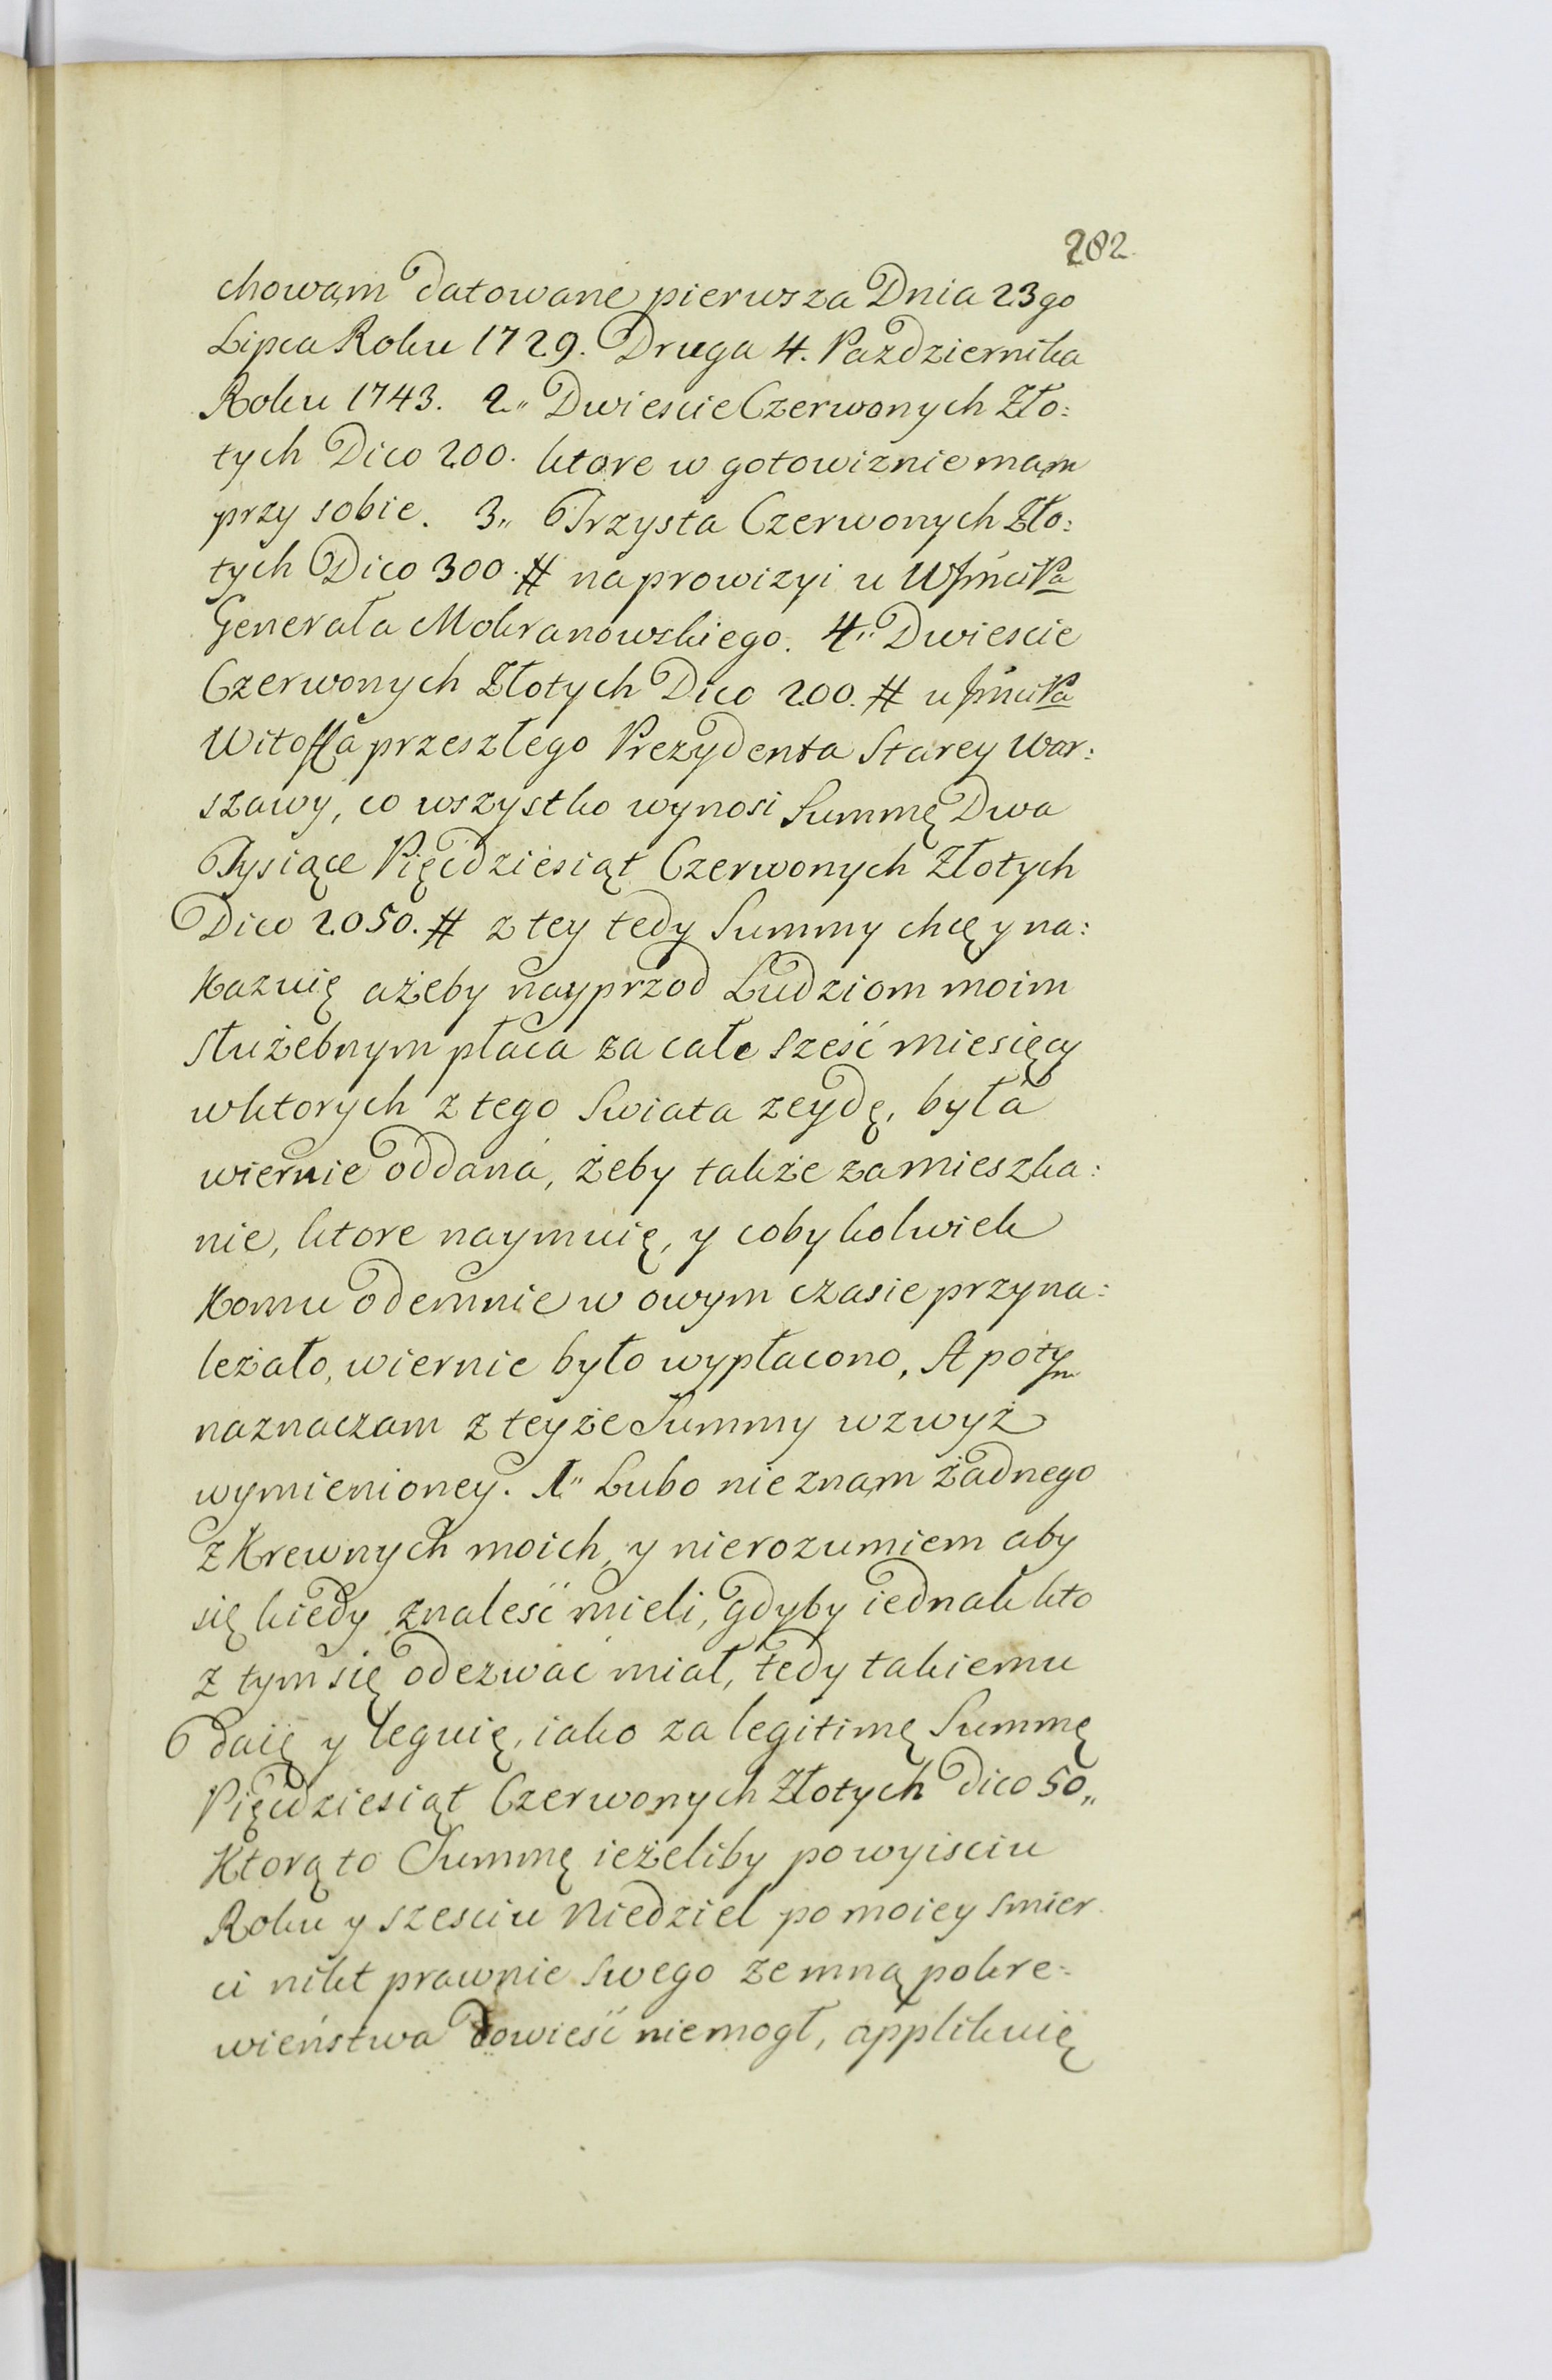 282.
chowam datowane pierwsza Dnia 23go
Lipca Roku 1729. Druga 4. Pazdziernika
Roku 1743. 2„ Dwiescie Czerwonych Zło:
tych Dico 200. ktore w gotowiznie mam
przy sobie. 3„ Trzysta Czerwonych Zło:
tych Dico 300. # na prowizyi u WJmci Pa
Generała Mokranowskiego. 4„ Dwiescie
Czerwonych Złotych Dico 200. # u Jmci Pa
Witoffa przeszłego Prezydenta Starey War:
szawy, co wszystko wynosi Summę Dwa
Tysiące Pięcdziesiąt Czerwonych Złotych
Dico 2050. # z tey tedy Summy chcę y na:
kazuię ażeby nayprzod Ludziom moim
służebnym płaca za całe sześć miesięcy
wktorych z tego Swiata zeydę, była
wiernie oddana, żeby także zamieszka:
nie, ktore naymuię, y cobykolwiek
komu odemnie w owym czasie przyna:
leżało, wiernie było wypłacono, A potym
naznaczam z teyże Summy wzwyż
wymienioney. 1„ Lubo nieznam żadnego
z Krewnych moich, y nierozumiem aby
się kiedy znaleść mieli, gdyby iednak kto
z tym się odezwać miał, tedy takiemu
daię y leguię, iako za legitimę Summę
Pięcdziesiąt Czerwonych Złotych dico 50„
Ktorą to Summę ieżeliby po wyisciu
Roku y szesciu Niedziel po moiey smier
ci nikt prawnie swego zemną pokre:
wieństwa dowieść niemogł, applikuię